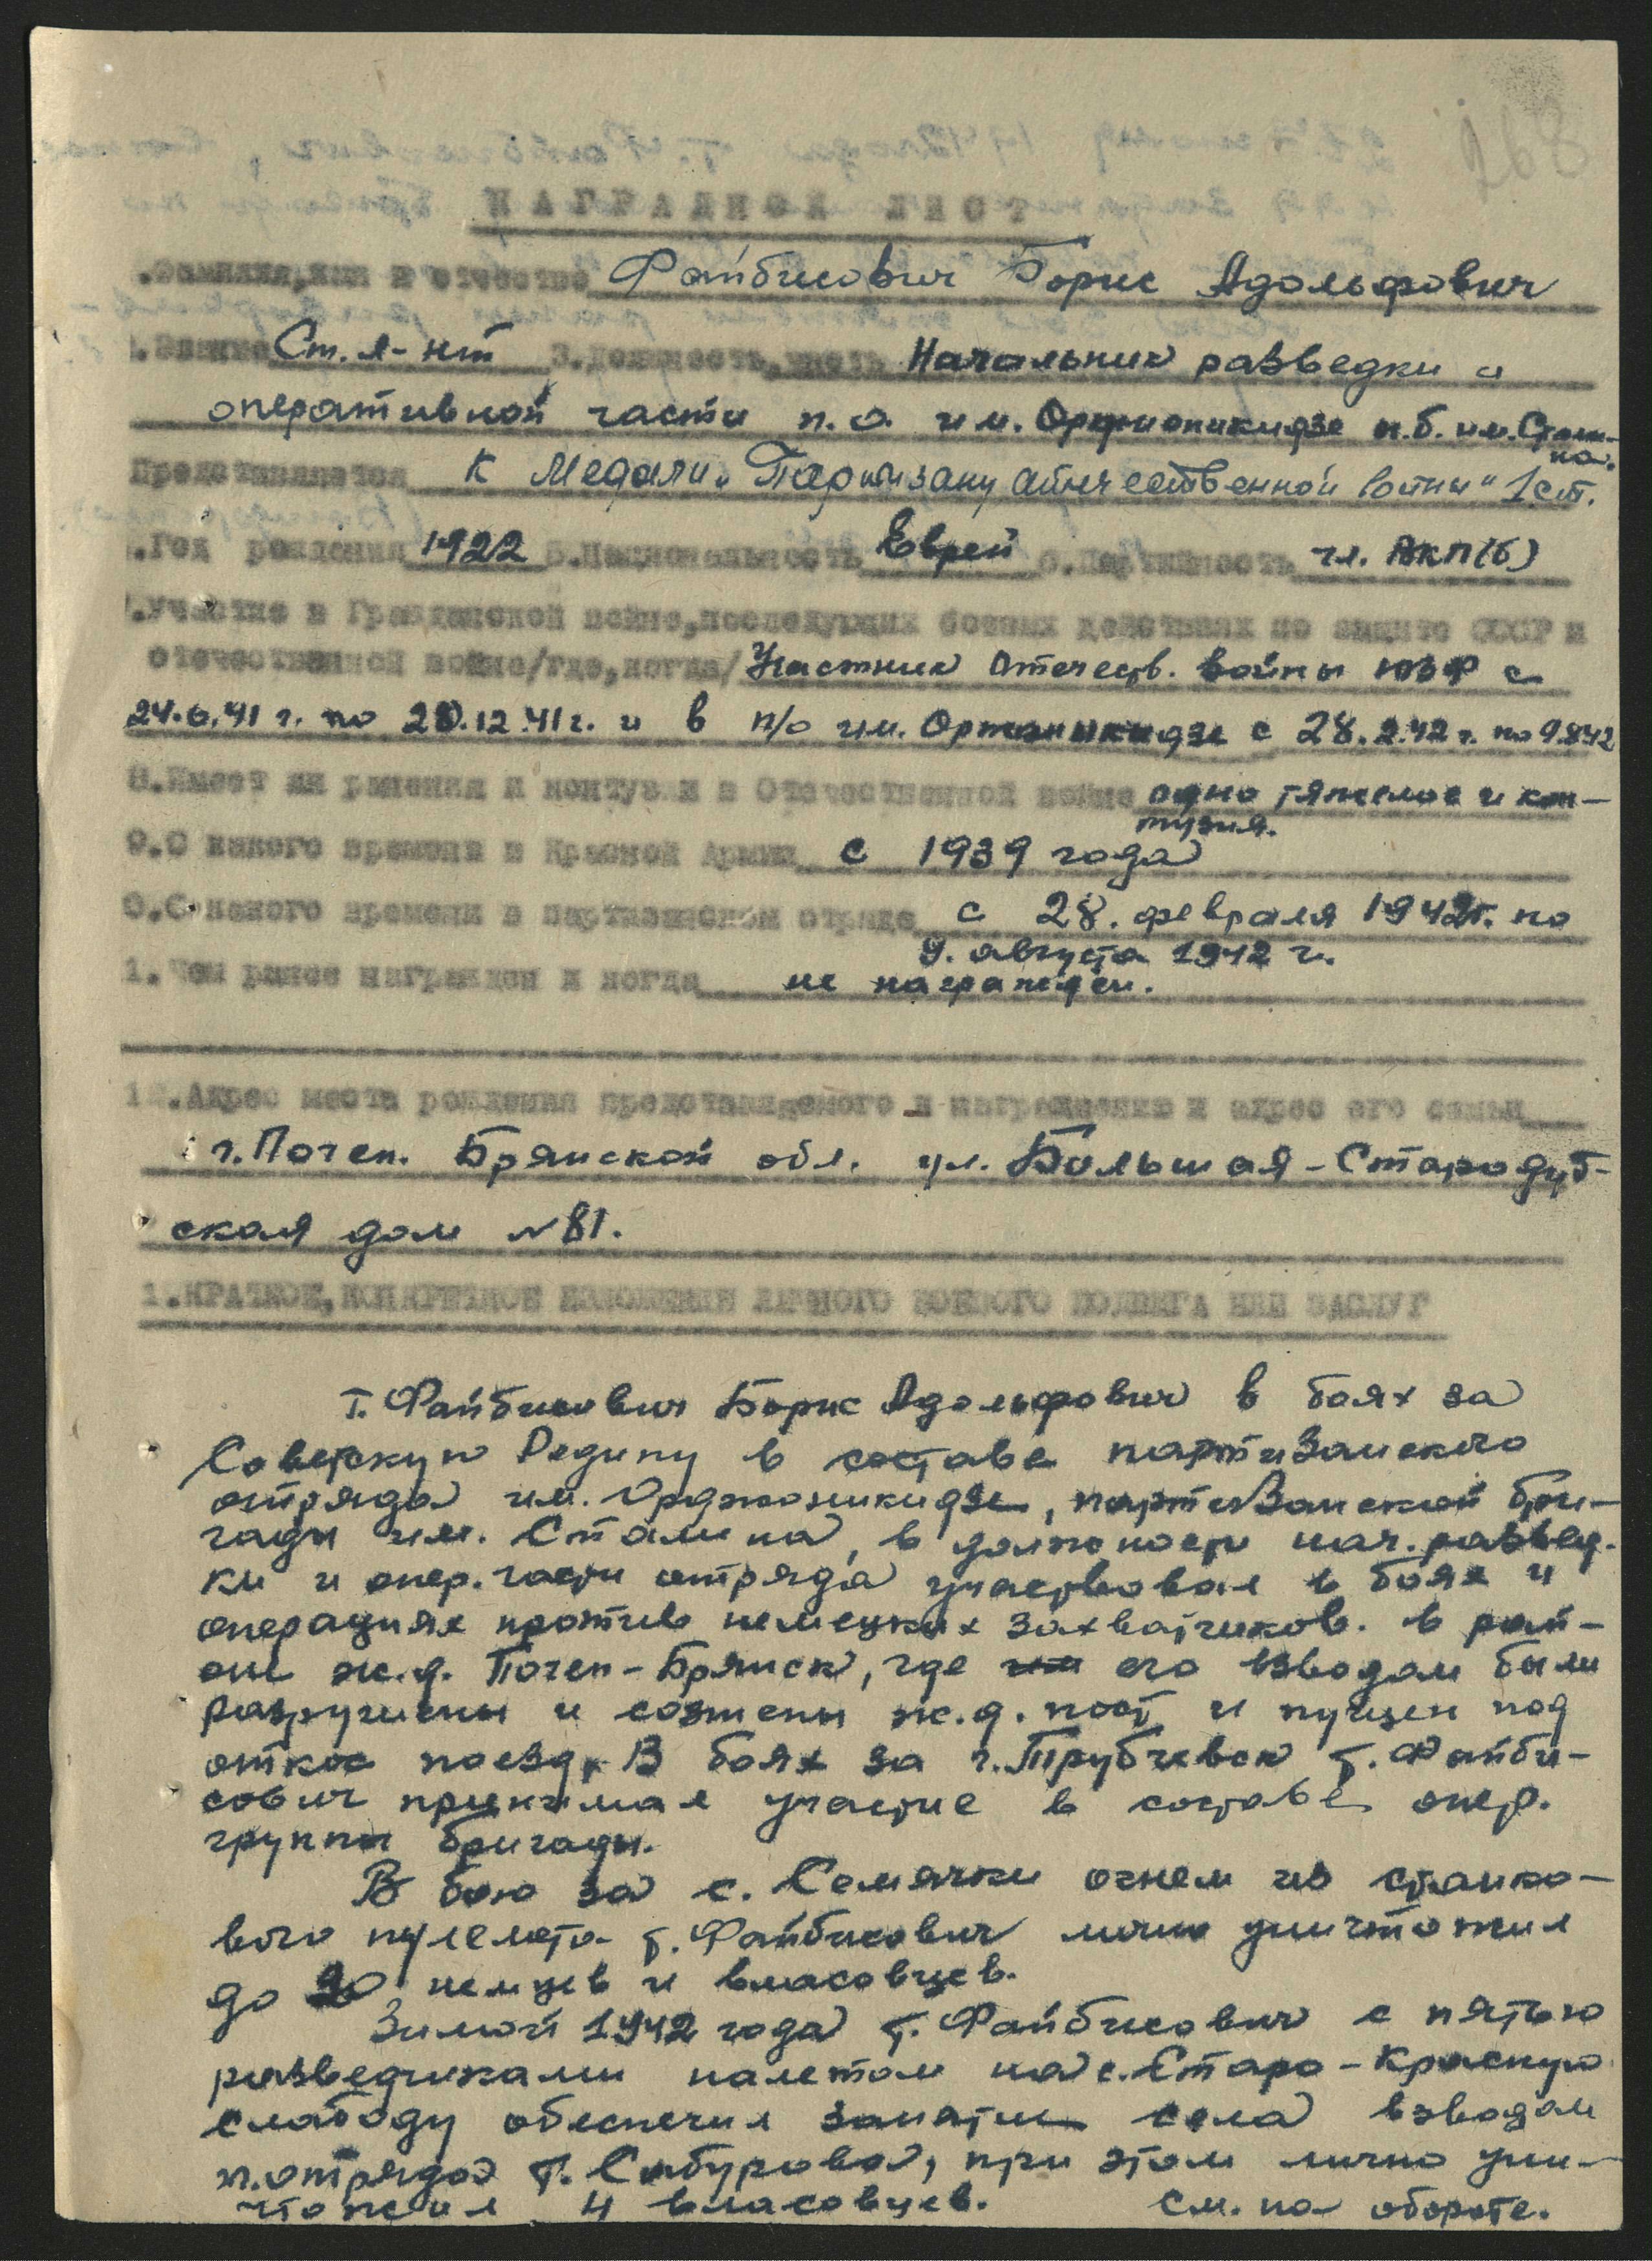 268
НАГРАДНОЙ ЛИСТ
.Фамилия,имя и отчество Файбисович Борис Адольфович
.Звание Ст. л-нт 3.Должность,часть Начальник разведки и
оперативной части п.о. им. Орджоникидзе п.б. им. Стали-
на.
Представляется К Медали „Партизану отечественной войны" 1 ст.
.Год рождения 1922 5.Национальность Еврей 6.Партийность чл. ВКП(б)
.Участие в Гражданской войне,последующих боевых действиях по защите СССР и
отечественной войне/где,когда/ Участник Отечеств. войны ЮЗФ с
24.6.41 г. по 20.12.41 г. и в п/о им. Орджоникидзе с 28.2.42 г. по 9.8.42
8.Имеет ли ранения и контузии в Отечественной войне одно тяжелое и кон-
тузия.
9.С какого времени в Красной Армии с 1939 года
0.С какого времени в партизанском отряде с 28. февраля 1942г. по
9. августа 1942 г.
1.Чем ранее награжден и когда не награжден.
12.Адрес места рождения представляемого к награждению и адрес его семьи
г. Почеп. Брянской обл. ул. Большая-Стародуб-
ская дом №81.
1.КРАТКОЕ,КОНКРЕТНОЕ ИЗЛОЖЕНИЕ ЛИЧНОГО БОЕВОГО ПОДВИГА ИЛИ ЗАСЛУГ
Т. Файбисович Борис Адольфович в боях за
Советскую Родину в составе партизанского
отряда им. Орджоникидзе, партизанской бри-
гады им. Сталина, в должности нач. развед-
ки и опер. части отряда участвовал в боях и
операциях против немецких захватчиков. в рай-
оне ж.д. Почеп-Брянск, где его взводом были
разрушены и сожжены ж.д. мост и пущен под
откос поезд. В боях за г. Трубчевск т. Файби-
сович принимал участие в составе опер.
группы бригады.
В бою за с. Семячки огнем из станко-
вого пулемета т. Файбисович лично уничтожил
до 20 немцев и власовцев.
Зимой 1942 года т. Файбисович с пятью
разведчиками налетом на с. Старо-Красную
слабоду обеспечил занятие села взводом
п.отряда т. Сабурова, при этом лично уни-
чтожил 4 власовцев. см. на обороте.